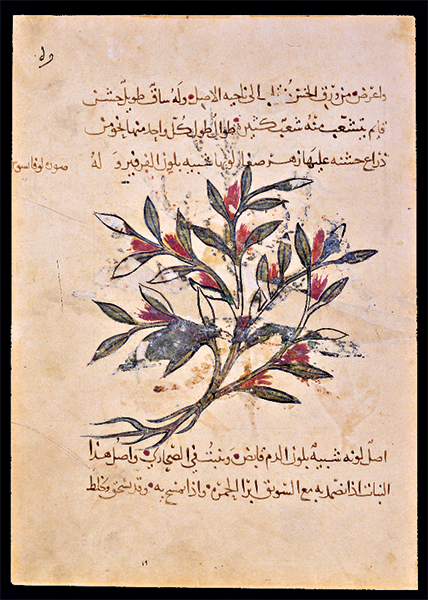 واعرض من ورق الخس الى ناحية الاصل وله ساق طويل خشن
قائم يتشعب منه شعب كثيرة طوال طول كل واحد منها نحو من
ذراع خشنة عليها زهر صغار لونها شبيه بلون الفرفير وله
صورة
اصل لونه شبيه بلون الدم قابض وينبت في الصحارى واصل هذا
النبات اذا تضمد به مع السويق ابرا الحمرة واذا تمسح به وقد سحق وخلط